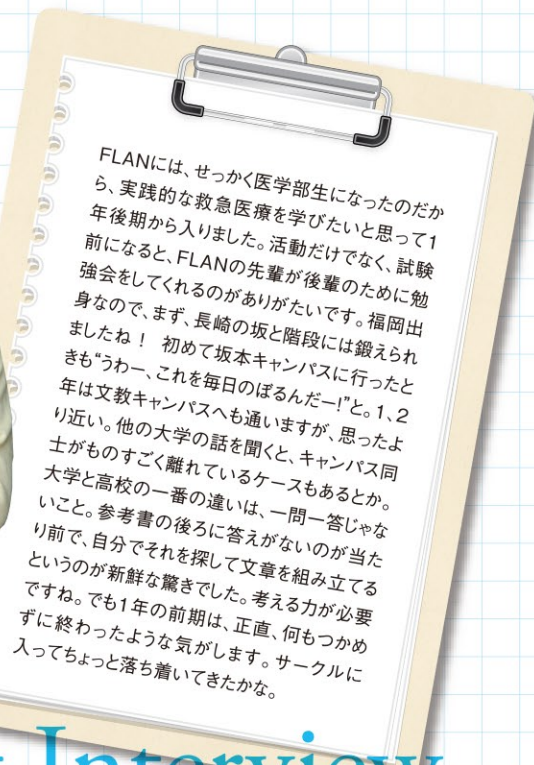 FLANには、せっかく医学部生になったのだか
ら、実践的な救急医療を学びたいと思って1
年後期から入りました。活動だけでなく、試験
前になると、FLANの先輩が後輩のために勉
強会をしてくれるのがありがたいです。福岡出
身なので、まず、長崎の坂と階段には鍛えられ
ましたね！ 初めて坂本キャンパスに行ったと
きも“うわー、これを毎日のぼるんだー!”と。1、2
年は文教キャンパスへも通いますが、思ったよ
り近い。他の大学の話を聞くと、キャンパス同
士がものすごく離れているケースもあるとか。
大学と高校の一番の違いは、一問一答じゃな
いこと。参考書の後ろに答えがないのが当た
り前で、自分でそれを探して文章を組み立てる
というのが新鮮な驚きでした。考える力が必要
ですね。でも1年の前期は、正直、何もつかめ
ずに終わったような気がします。サークルに
入ってちょっと落ち着いてきたかな。
Interview